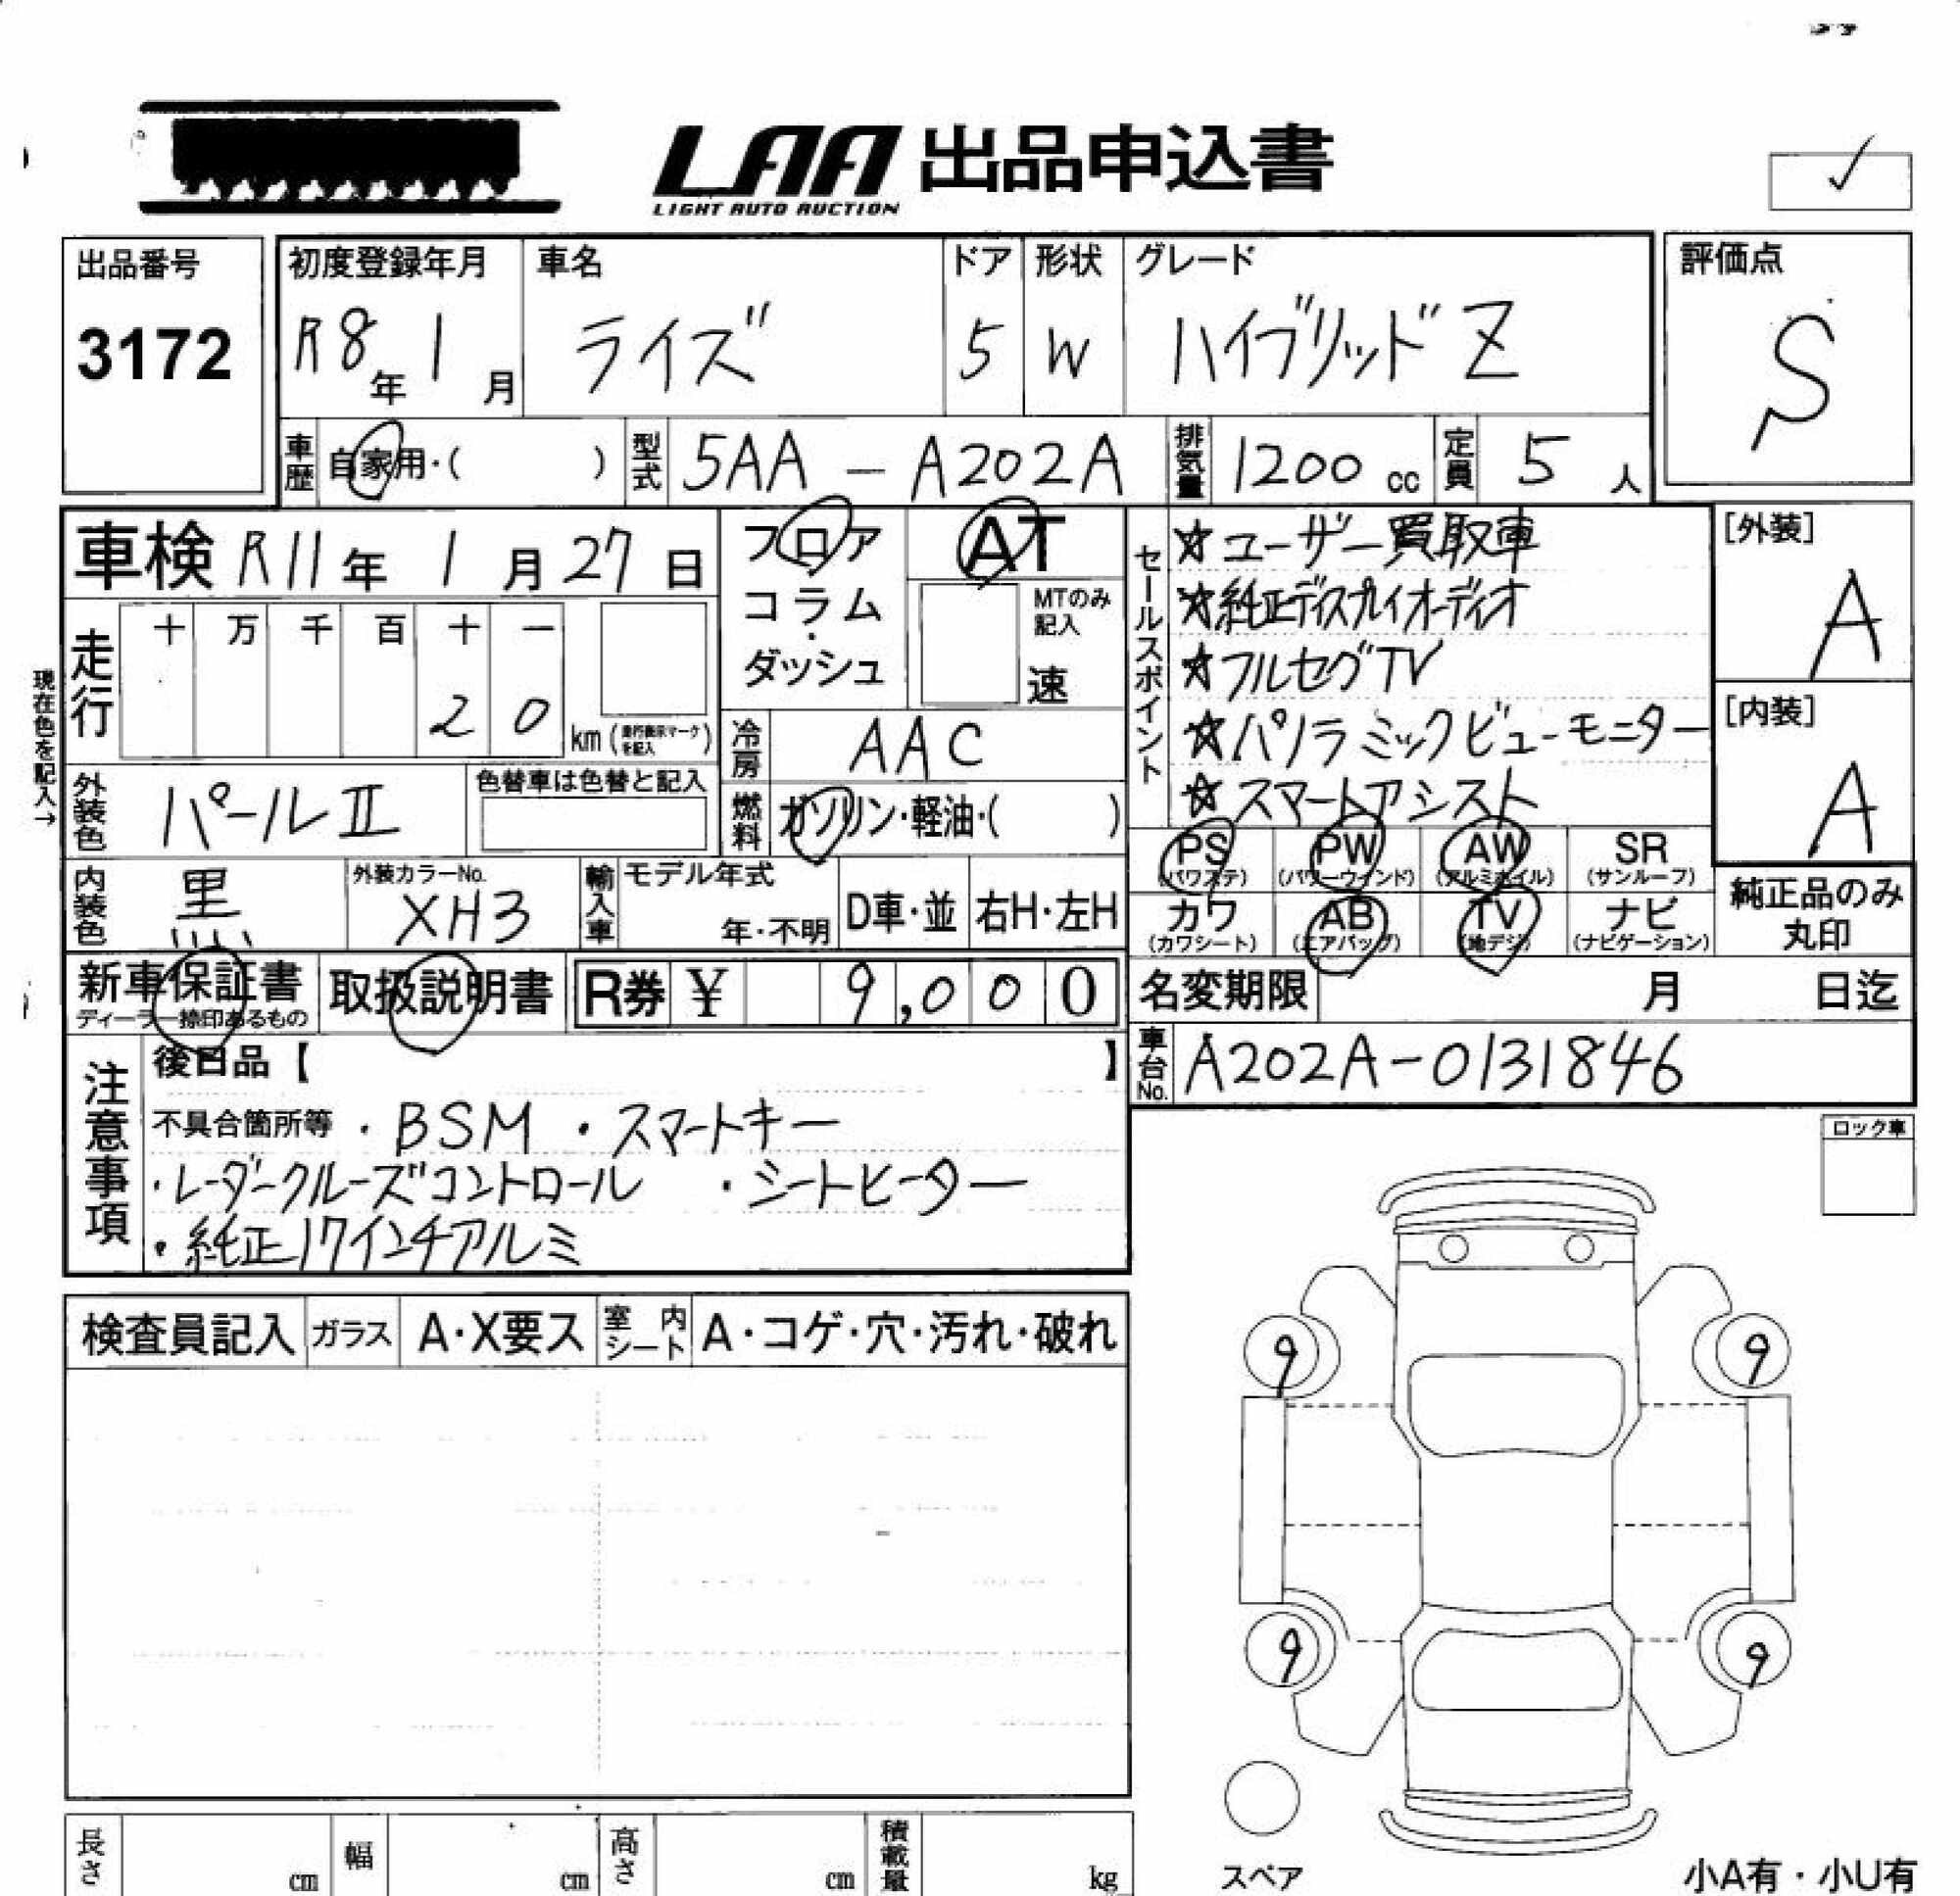 LAA 出品申込書
LIGHT AUTO AUCTION
出品番号
3172
初度登録年月
R8年 1月
車名
ライズ
ドア
5
形状
W
グレード
ハイブリッド Z
評価点
S
車歴 自家用・( )
型式 5AA - A202A
排気量 1200 cc
定員 5 人
車検 R11年 1月 27日
フロア
コラム
・
ダッシュ
AT
MTのみ
記入
速
走行 十 万 千 百 十 一
2 0 km (走行表示マークを記入)
現在色を記入→
冷房 AAC
燃料 ガソリン・軽油・( )
外装色 パールⅡ
色替車は色替と記入
内装色 黒
外装カラーNo.
XH3
輸入車 モデル年式
年・不明
D車・並 右H・左H
セールスポイント
☆ユーザー買取車
☆純正ディスプレイオーディオ
☆フルセグTV
☆パノラミックビューモニター
☆スマートアシスト
[外装]
A
[内装]
A
PS PW AW SR
(パワステ) (パワーウインド) (アルミホイル) (サンルーフ)
カワ AB TV ナビ
(カワシート) (エアバッグ) (地デジ) (ナビゲーション)
純正品のみ
丸印
新車保証書
ディーラー捺印あるもの
取扱説明書
R券 ¥ 9,000
名変期限 月 日迄
車台No. A202A-0131846
注意事項
後日品【 】
不具合箇所等 ・BSM ・スマートキー
・レーダークルーズコントロール ・シートヒーター
・純正17インチアルミ
ロック車
検査員記入 ガラス A・X要ス 室内シート A・コゲ・穴・汚れ・破れ
9 9
9 9
スペア
小A有・小U有
長さ cm 幅 cm 高さ cm 積載量 kg